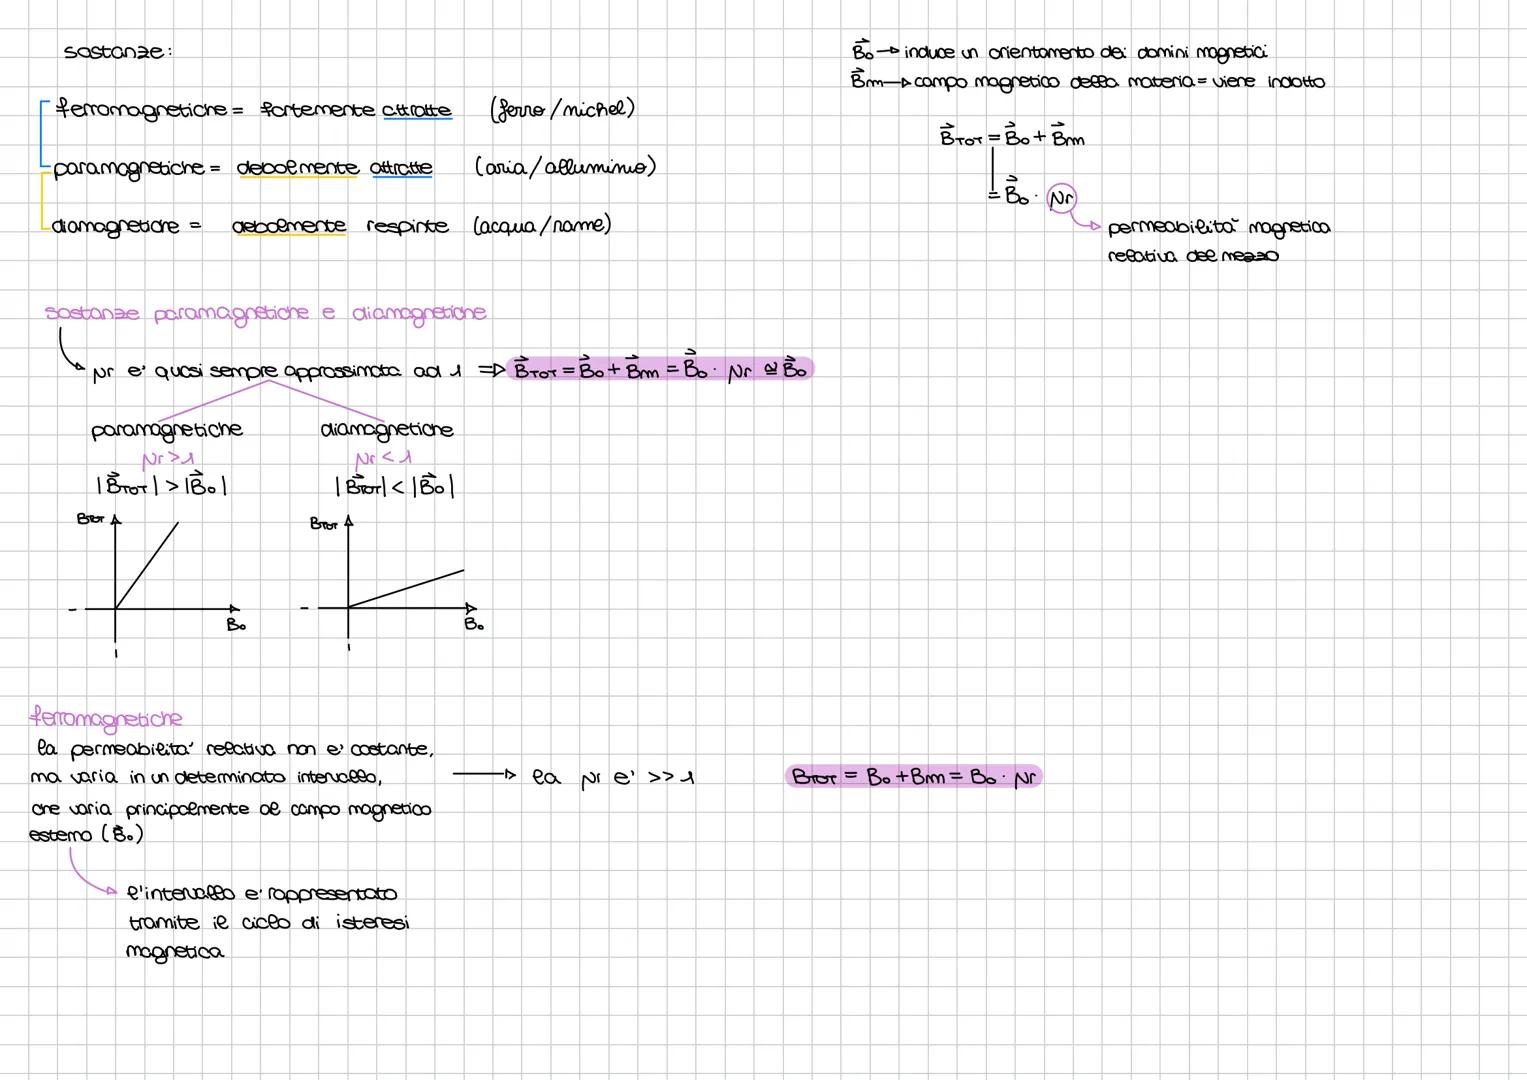 sostanze:
ferromagnetiche = fortemente attratte (ferro/nichel)
paramagnetiche = debolmente attratte (aria/alluminio)
diamagnetiche = debolmente respinte (acqua/rame)
B⃗₀ → induce un orientamento dei domini magnetici
B⃗m → campo magnetico della materia = viene indotto
B⃗TOT = B⃗₀ + B⃗m
= B⃗₀ · μr
permeabilità magnetica
relativa del mezzo
sostanze paramagnetiche e diamagnetiche
μr e' quasi sempre approssimata ad 1 ⇒ B⃗TOT = B⃗₀ + B⃗m = B⃗₀ · μr ≅ B⃗₀
paramagnetiche diamagnetiche
μr > 1 μr < 1
|B⃗TOT| > |B⃗₀| |B⃗TOT| < |B⃗₀|
BTOT BTOT
B₀ B₀
ferromagnetiche
la permeabilita' relativa non e' costante,
ma varia in un determinato intervallo, → la μr e' >> 1 BTOT = B₀ + Bm = B₀ · μr
che varia principalmente al campo magnetico
esterno (B⃗₀)
l'intervallo e' rappresentato
tramite il ciclo di isteresi
magnetica